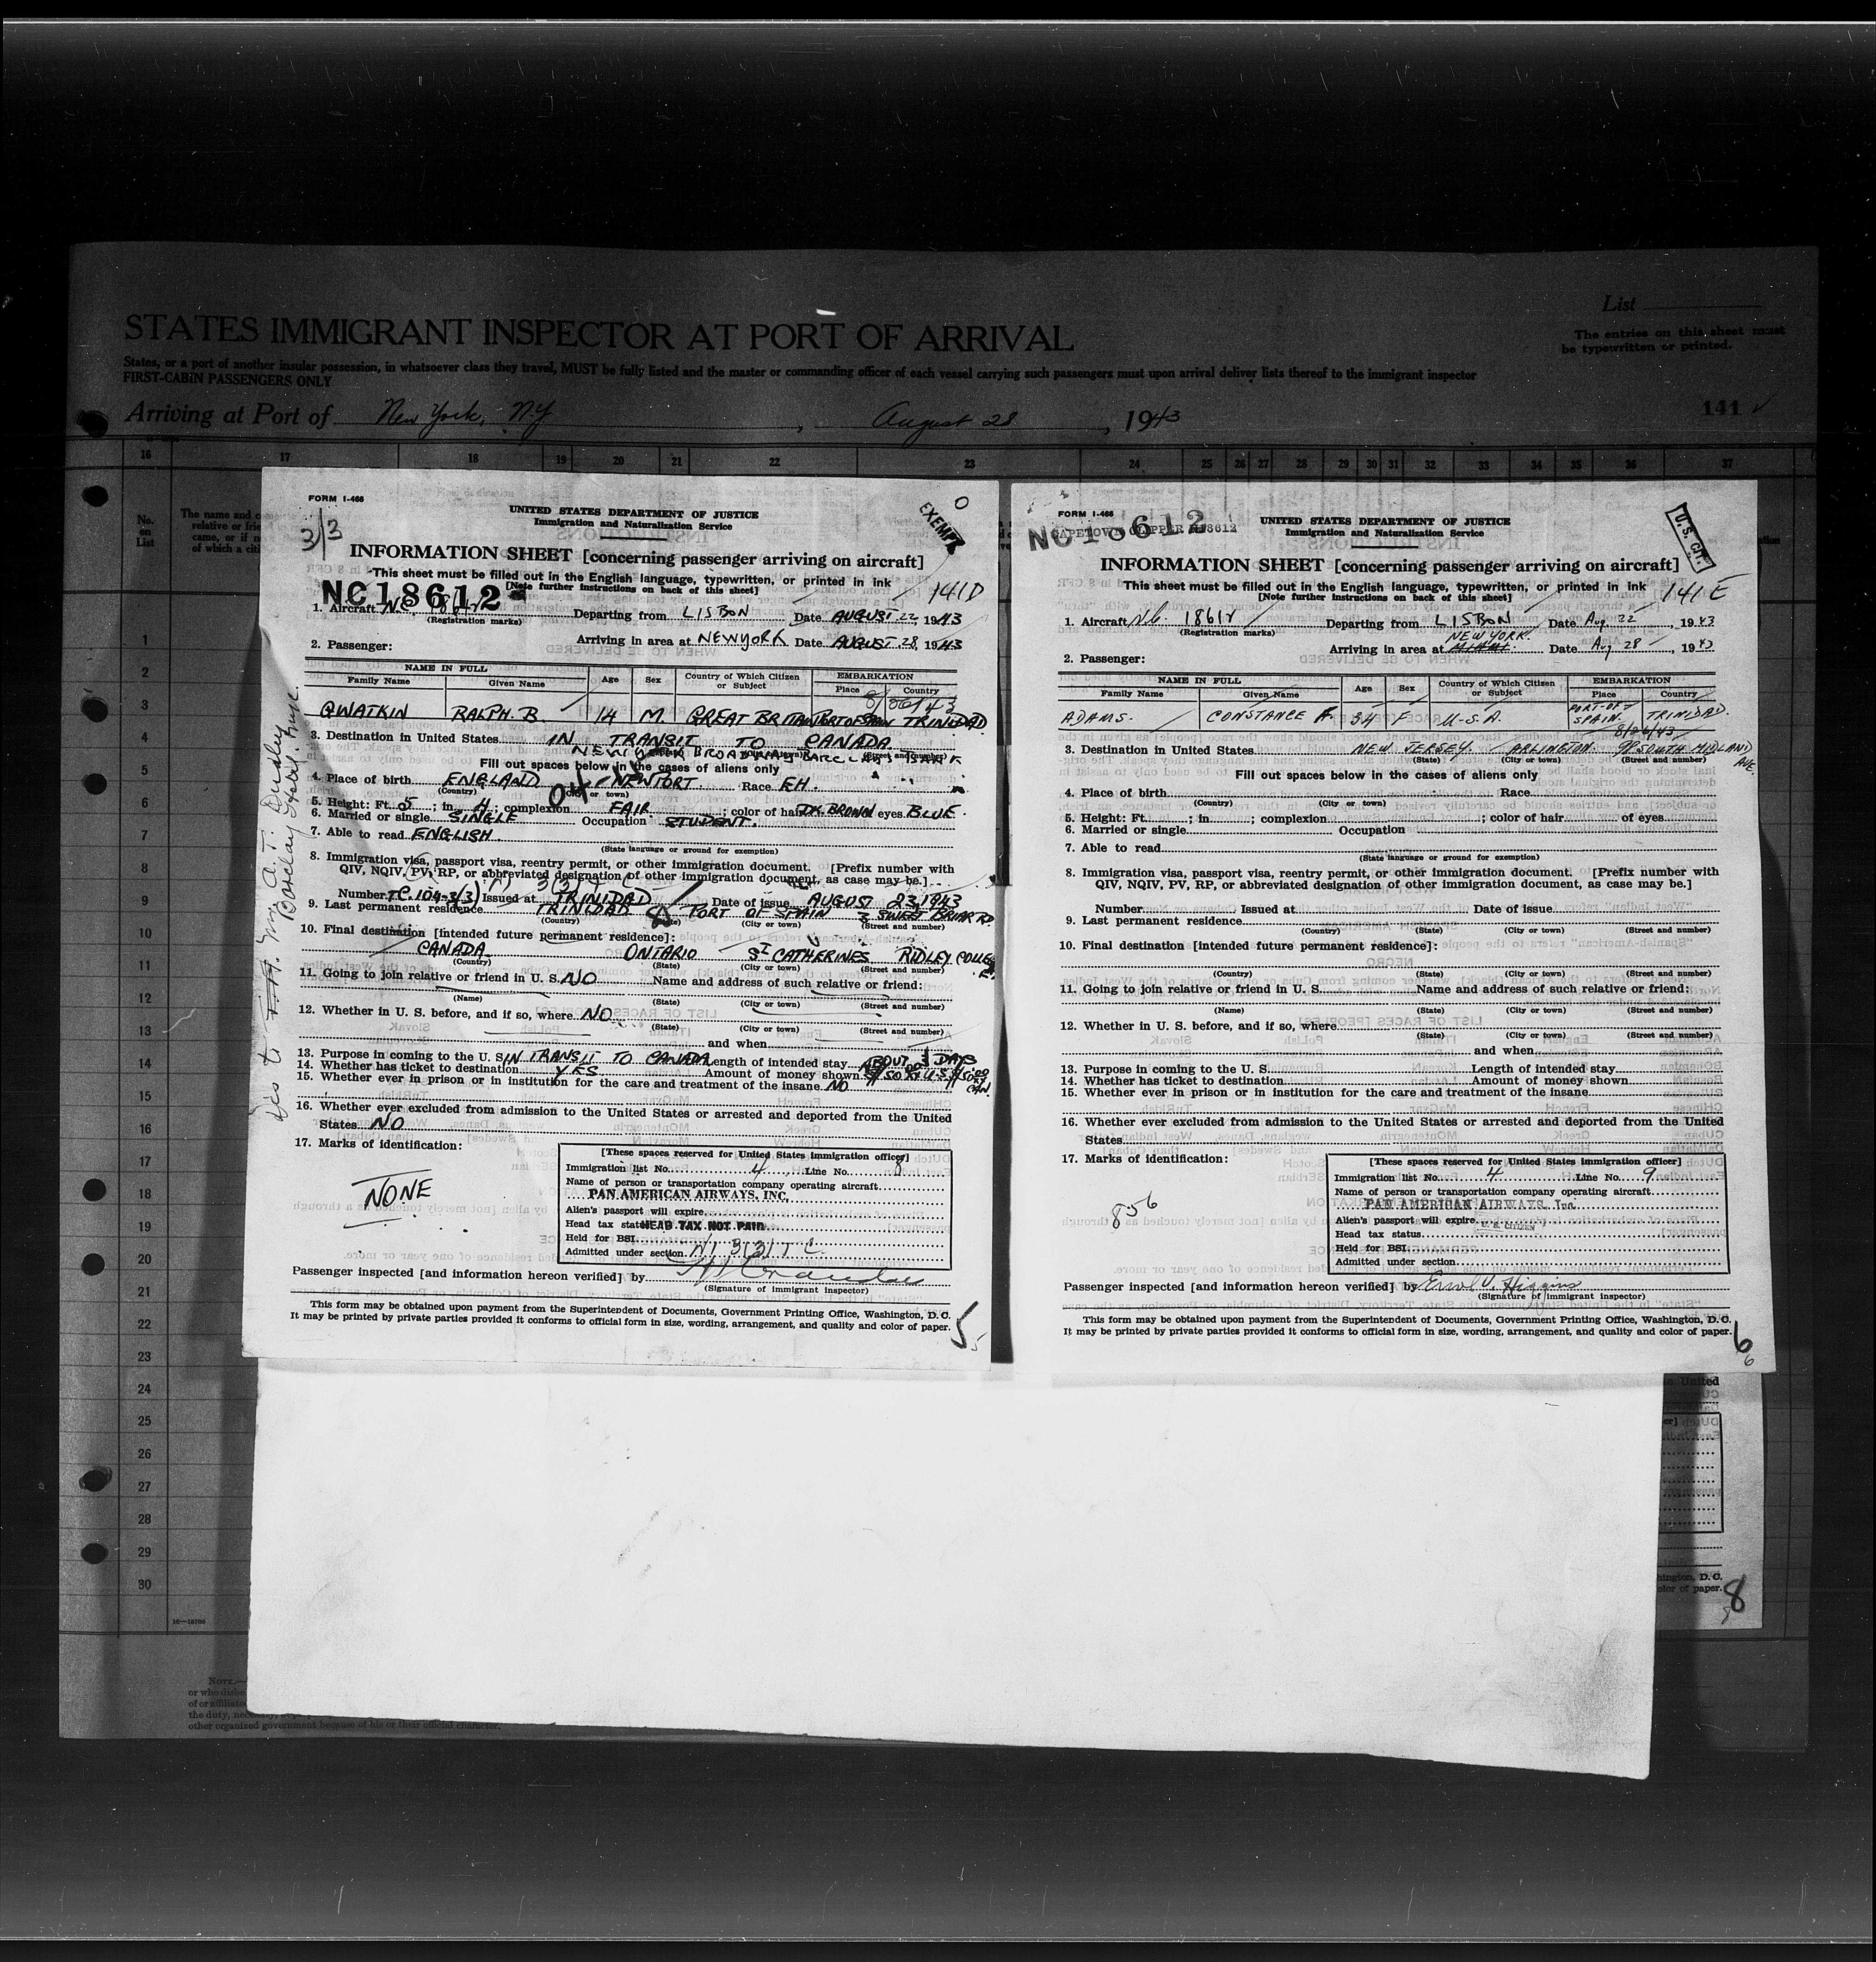 List
STATES IMMIGRANT INSPECTOR AT PORT OF ARRIVAL
The entries on this sheet must
be typewritten or printed.
States, or a port of another insular possession, in whatsoever class they travel, MUST be fully listed and the master or commanding officer of each vessel carrying such passengers must upon arrival deliver lists thereof to the immigrant inspector
FIRST-CABIN PASSENGERS ONLY
Arriving at Port of New York, N.Y. , August 28 , 1943
141 ✓
16 17 18 19 20 21 22 23 24 25 26 27 28 29 30 31 32 33 34 35 36 37
No.
on
List
The name and
relative or
came, or if
of which a
1
2
3
4
5
6
7
8
9
10
11
12
13
14
15
16
17
18
19
20
21
22
23
24
25
26
27
28
29
30
16—18700
NOTE.—
or who
of or
the duty,
other organized government because of his or their official character.
FORM I-466
3/3
UNITED STATES DEPARTMENT OF JUSTICE
Immigration and Naturalization Service
EXEMPT
INFORMATION SHEET [concerning passenger arriving on aircraft]
This sheet must be filled out in the English language, typewritten, or printed in ink
[Note further instructions on back of this sheet]
NC18612
141D
1. Aircraft NC. 18612 Departing from LISBON Date AUGUST 22 1943
(Registration marks)
Arriving in area at NEWYORK Date AUGUST 28, 1943
2. Passenger:
NAME IN FULL Age Sex Country of Which Citizen or Subject EMBARKATION
Family Name Given Name Place Country
8/26/43
GWATKIN RALPH. B. 14 M. GREAT BRITAIN PORT OF SPAIN TRINIDAD
3. Destination in United States IN TRANSIT TO CANADA
NEWYORK BROADWAY BARCLAYS BANK
Fill out spaces below in the cases of aliens only
4. Place of birth ENGLAND NEWPORT Race EH.
(Country) (City or town)
5. Height: Ft. 5; in. 4; complexion FAIR; color of hair DK BROWN eyes BLUE.
6. Married or single SINGLE Occupation STUDENT.
7. Able to read ENGLISH
(State language or ground for exemption)
8. Immigration visa, passport visa, reentry permit, or other immigration document. [Prefix number with
QIV, NQIV, PV, RP, or abbreviated designation of other immigration document, as case may be.]
Number TC.104-3(3) Issued at TRINIDAD Date of issue AUGUST 23,1943
9. Last permanent residence TRINIDAD PORT OF SPAIN 3 SWEET BRIAR RD
(Country) (State) (City or town) (Street and number)
10. Final destination [intended future permanent residence]:
CANADA ONTARIO ST CATHERINES RIDLEY COLLEGE
(Country) (State) (City or town) (Street and number)
11. Going to join relative or friend in U. S. NO Name and address of such relative or friend:
(Name) (State) (City or town) (Street and number)
12. Whether in U. S. before, and if so, where NO
(State) (City or town) (Street and number)
and when
13. Purpose in coming to the U. S. IN TRANSIT TO CANADA Length of intended stay ABOUT 3 DAYS
14. Whether has ticket to destination YES Amount of money shown
15. Whether ever in prison or in institution for the care and treatment of the insane NO
16. Whether ever excluded from admission to the United States or arrested and deported from the United
States NO
17. Marks of identification:
NONE
[These spaces reserved for United States immigration officer]
Immigration list No. 4 Line No. 8
Name of person or transportation company operating aircraft
PAN AMERICAN AIRWAYS, INC.
Alien's passport will expire
Head tax status HEAD TAX NOT PAID
Held for BSI
Admitted under section
Passenger inspected [and information hereon verified] by
(Signature of immigrant inspector)
This form may be obtained upon payment from the Superintendent of Documents, Government Printing Office, Washington, D. C.
It may be printed by private parties provided it conforms to official form in size, wording, arrangement, and quality and color of paper.
5
FORM I-466
NC18612
CAPETOWN CLIPPER NC18612
UNITED STATES DEPARTMENT OF JUSTICE
Immigration and Naturalization Service
U. S. CIT.
INFORMATION SHEET [concerning passenger arriving on aircraft]
This sheet must be filled out in the English language, typewritten, or printed in ink
[Note further instructions on back of this sheet]
141 E
1. Aircraft N.C. 18612 Departing from LISBON Date Aug 22, 1943
(Registration marks)
NEW YORK.
Arriving in area at MIAMI. Date Aug 28, 1943
2. Passenger:
NAME IN FULL Age Sex Country of Which Citizen or Subject EMBARKATION
Family Name Given Name Place Country
ADAMS. CONSTANCE A. 34 F U.S.A. PORT-OF-SPAIN. TRINIDAD.
8/26/43
3. Destination in United States NEW JERSEY. ARLINGTON 98 SOUTH MIDLAND AVE.
(State) (City or town) (Street and number)
Fill out spaces below in the cases of aliens only
4. Place of birth Race
(Country) (City or town)
5. Height: Ft. ; in. ; complexion ; color of hair of eyes
6. Married or single Occupation
7. Able to read
(State language or ground for exemption)
8. Immigration visa, passport visa, reentry permit, or other immigration document. [Prefix number with
QIV, NQIV, PV, RP, or abbreviated designation of other immigration document, as case may be.]
Number Issued at Date of issue
9. Last permanent residence
(Country) (State) (City or town) (Street and number)
10. Final destination [intended future permanent residence]:
(Country) (State) (City or town) (Street and number)
11. Going to join relative or friend in U. S. Name and address of such relative or friend:
(Name) (State) (City or town) (Street and number)
12. Whether in U. S. before, and if so, where
(State) (City or town) (Street and number)
and when
13. Purpose in coming to the U. S. Length of intended stay
14. Whether has ticket to destination Amount of money shown
15. Whether ever in prison or in institution for the care and treatment of the insane
16. Whether ever excluded from admission to the United States or arrested and deported from the United
States
17. Marks of identification:
856
[These spaces reserved for United States immigration officer]
Immigration list No. 4 Line No. 9
Name of person or transportation company operating aircraft
PAN AMERICAN AIRWAYS, Inc.
Alien's passport will expire
U. S. CITIZEN
Head tax status
Held for BSI
Admitted under section
Passenger inspected [and information hereon verified] by Errol V. Higgins
(Signature of immigrant inspector)
This form may be obtained upon payment from the Superintendent of Documents, Government Printing Office, Washington, D. C.
It may be printed by private parties provided it conforms to official form in size, wording, arrangement, and quality and color of paper.
6
6
United
ington, D. C.
olor of paper.
8